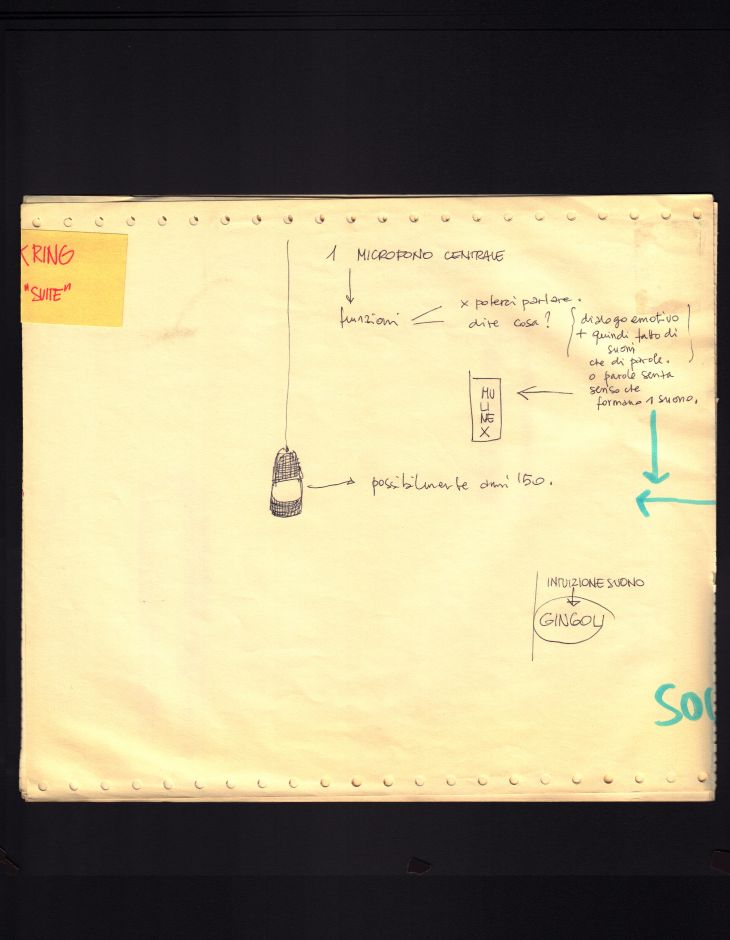 RING
"SUITE"
1 MICROFONO CENTRALE
funzioni
x poterci parlare.
dire cosa?
dialogo emotivo
+ quindi fatto di
suoni
che di parole.
o parole senza
senso che
formano 1 suono.
MU
LI
NE
X
possibilmente anni '50.
INTUIZIONE SUONO
GINGOLI